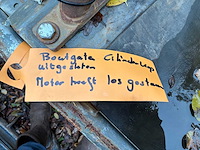 Boutgata Cilinder kop
uitgesloten
Motor heeft los gestaan